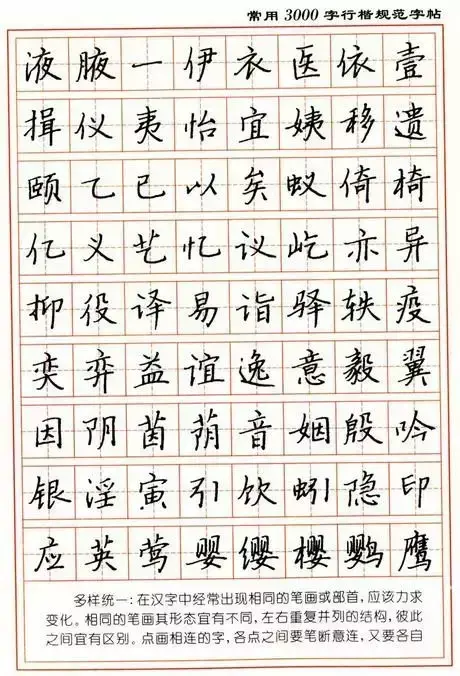 常用3000字行楷规范字帖
液腋一伊衣医依壹
揖仪夷怡宜姨移遗
颐乙已以矣蚁倚椅
亿义艺忆议屹亦异
抑役译易诣驿轶疫
奕弈益谊逸意毅翼
因阴茵荫音姻殷吟
银淫寅引饮蚓隐印
应英莺婴缨樱鹦鹰
多样统一:在汉字中经常出现相同的笔画或部首,应该力求
变化。相同的笔画其形态宜有不同,左右重复并列的结构,彼此
之间宜有区别。点画相连的字,各点之间要笔断意连,又要各自